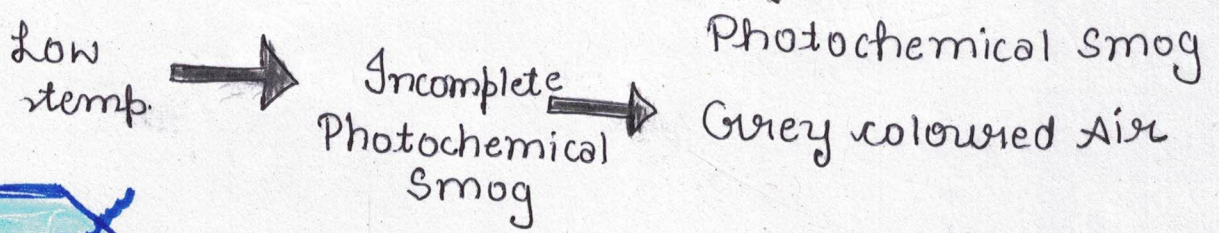 Low
temp.
Incomplete
Photochemical
Smog
Photochemical Smog
Grey coloured Air